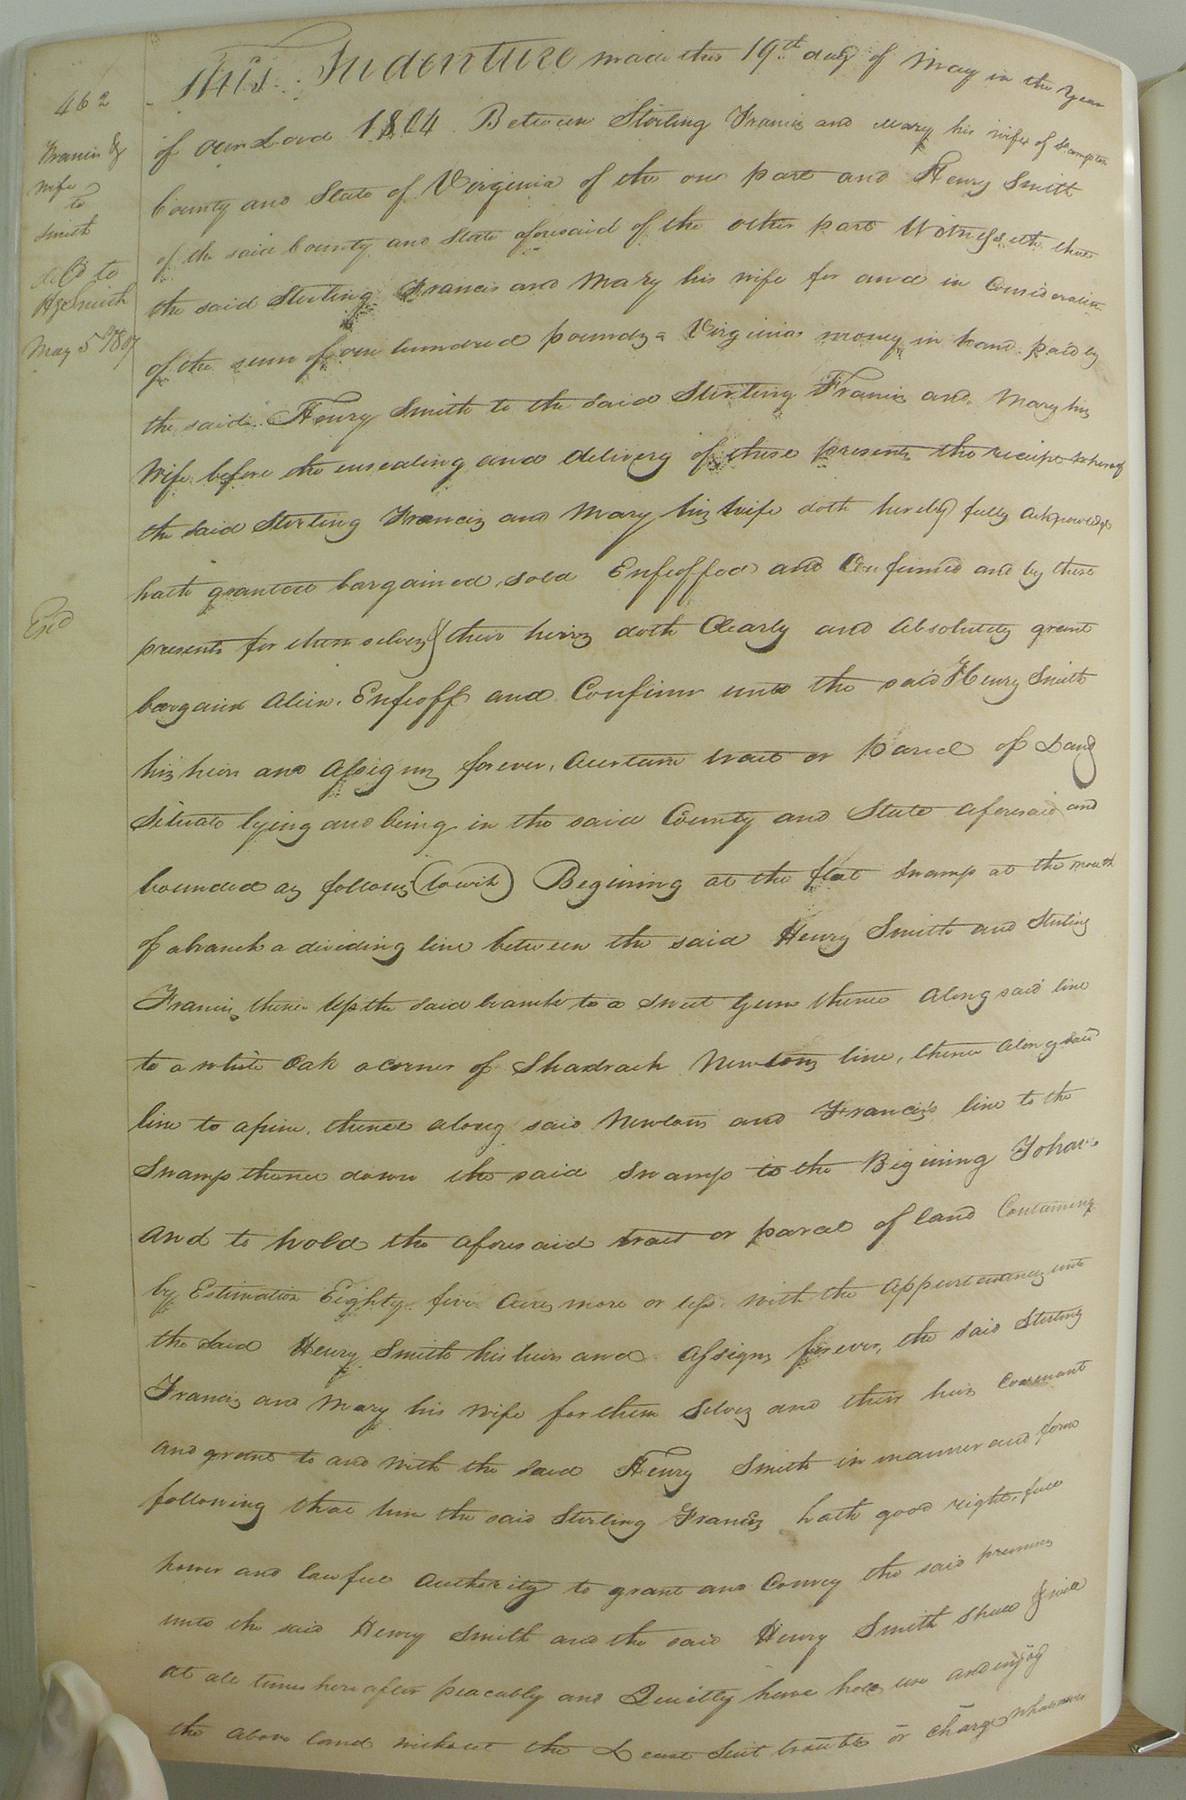 462
Francis &
Wife
to
Smith
deld to
Hy Smith
May 5th 1807
Exd
This Indenture made this 19th day of May in the year
of our Lord 1804 Between Sterling Francis and Mary his wife of Southampton
County and State of Virginia of the one part and Henry Smith
of the said County and State aforesaid of the other part Witnesseth that
the said Sterling Francis and Mary his wife for and in Consideration
of the sum of one hundred pounds Virginia money in hand paid by
the said Henry Smith to the said Sterling Francis and Mary his
Wife before the ensealing and delivery of these presents the receipt whereof
the said Sterling Francis and Mary his wife doth hereby fully acknowledge
hath granted bargained sold Enfeoffed and Confirmed and by these
presents for them selves & their heirs doth Clearly and Absolutely grant
bargain Alien Enfeoff and Confirm unto the said Henry Smith
his heirs and Assigns forever, a certain tract or Parcel of Land
Situate lying and being in the said County and State aforesaid and
bounded as follows (towit) Begining at the flat Swamp at the mouth
of a branch a dividing line between the said Henry Smith and Sterling
Francis, thence Up the said branch to a sweet Gum thence Along said line
to a white Oak a corner of Shadrach Newtons line, thence along said
line to a pine, thence along said Newtons and Francis's line to the
Swamp thence down the said Swamp to the Begining To have
and to hold the aforesaid tract or parcel of land Containing
by Estimation Eighty five Acres more or less with the appurtenances unto
the said Henry Smith his heirs and Assigns forever, the said Sterling
Francis and Mary his Wife for them Selves and their heirs Covenant
and grant to and with the said Henry Smith in manner and form
following that him the said Sterling Francis hath good right, full
power and lawful Authority to grant and Convey the said premises
unto the said Henry Smith and the said Henry Smith Shall & will
at all times hereafter peacably and Quietly have hold use and enjoy
the above land without the Least Suit trouble or charge whatsoever